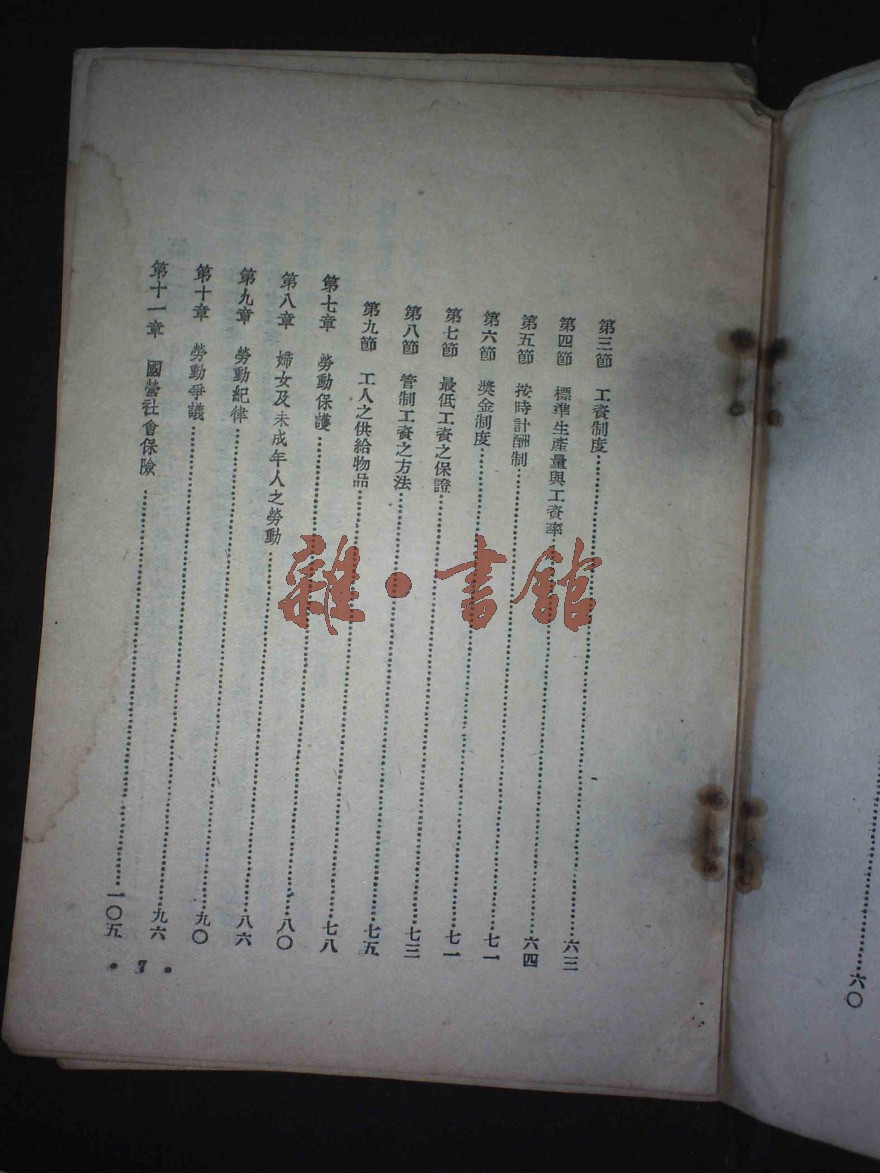 ……六〇
第三節　工資制度……六三
第四節　標準生產量與工資率……六四
第五節　按時計酬制……七一
第六節　獎金制度……七一
第七節　最低工資之保證……七三
第八節　管制工資之方法……七五
第九節　工人之供給物品……七八
第七章　勞動保護……八〇
第八章　婦女及未成年人之勞動……八六
第九章　勞動紀律……九〇
第十章　勞動爭議……九六
第十一章　國營社會保險……一〇五
• 7 •
雜•書館